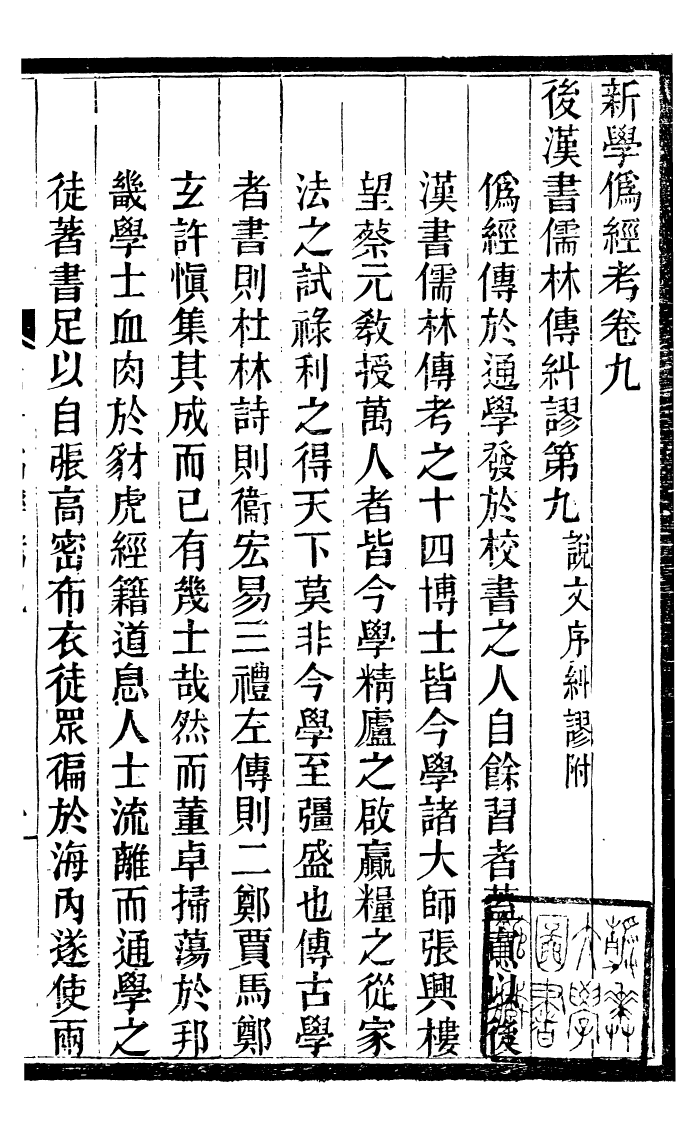 新學僞經考卷九
後漢書儒林傳糾謬第九 說文序糾謬附
僞經傳於通學發於校書之人自餘習者蓋寡以後
漢書儒林傳考之十四博士皆今學諸大師張興樓
望蔡元敎授萬人者皆今學精廬之啟贏糧之從家
法之試祿利之得天下莫非今學至彊盛也傳古學
者書則杜林詩則衞宏易三禮左傳則二鄭賈馬鄭
玄許愼集其成而已有幾士哉然而董卓掃蕩於邦
畿學士血肉於豺虎經籍道息人士流離而通學之
徒著書足以自張高密布衣徒眾徧於海內遂使兩